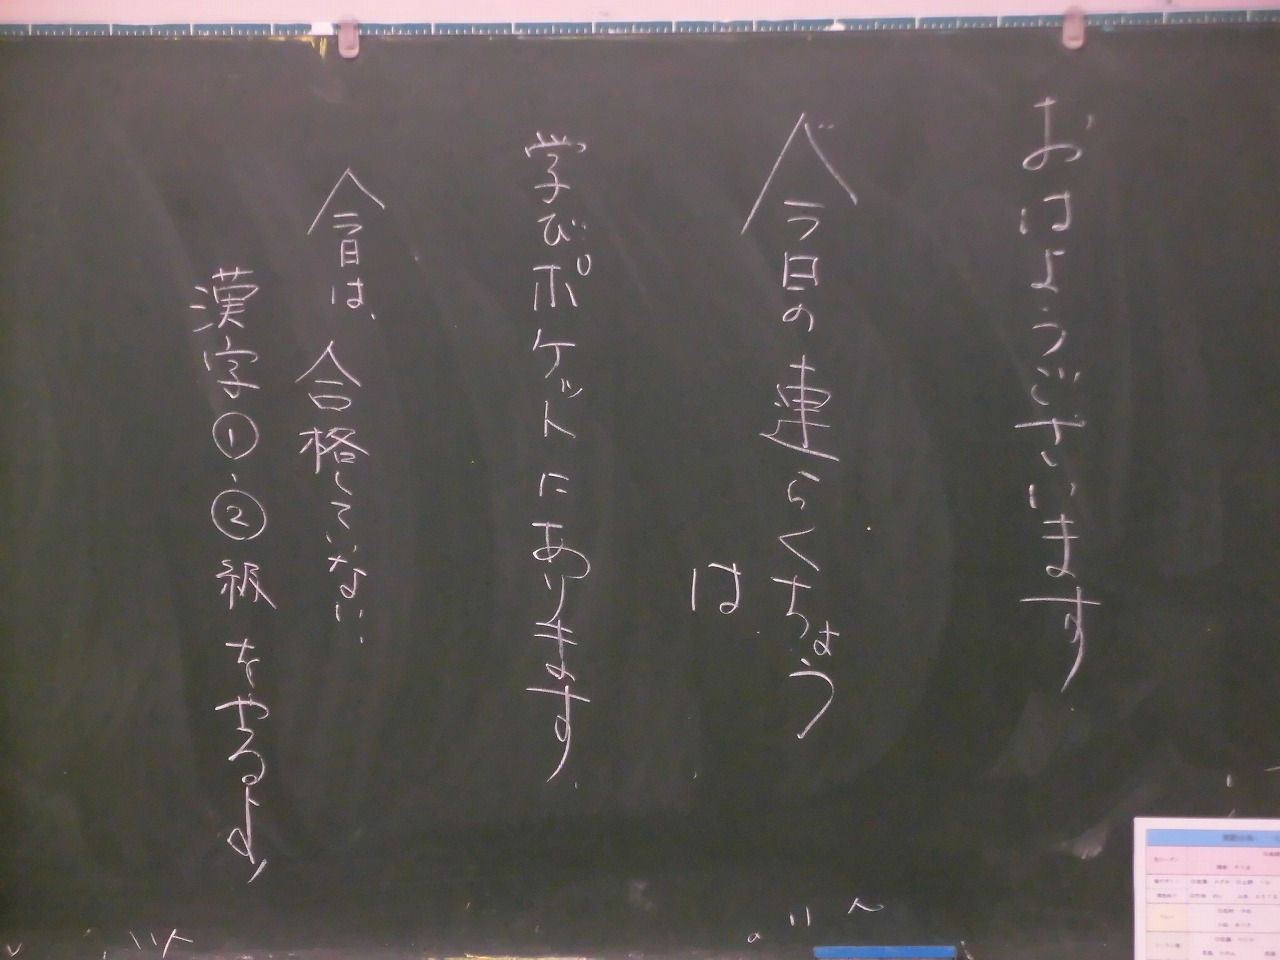 おはようございます
今日の連らくちょう
は
学びポケットにあります
今日は、合格していない
漢字①、②級をやるよ